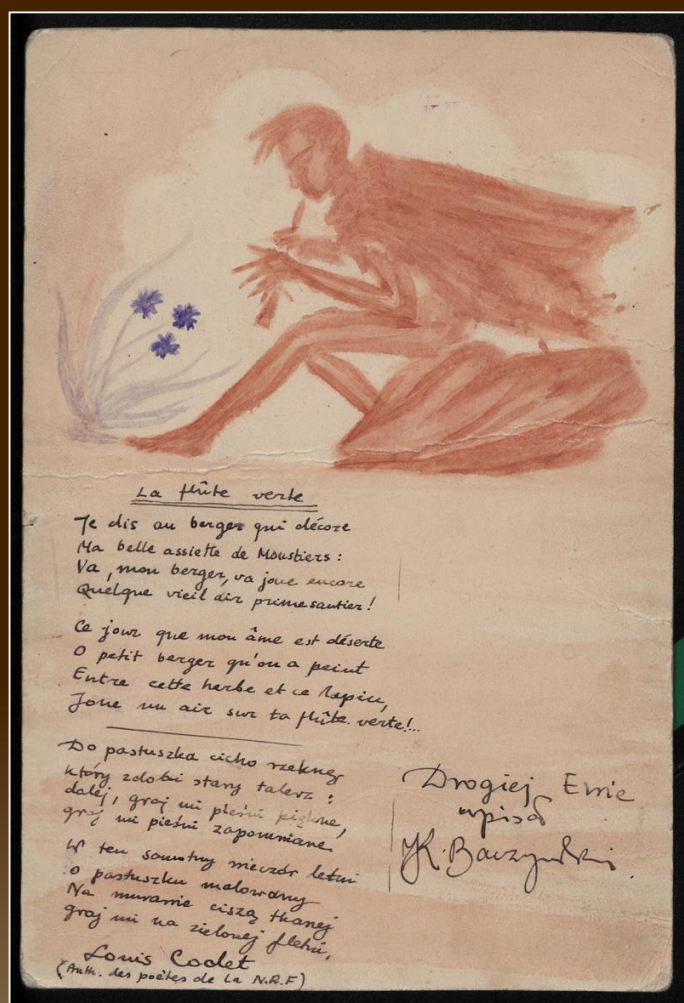 La flûte verte
Je dis au berger qui décore
Ma belle assiette de Moustiers :
Va, mon berger, va joue encore
Quelque vieil air primesautier !
Ce jour que mon âme est déserte
O petit berger qu'on a peint
Entre cette herbe et ce lapin,
Joue un air sur ta flûte verte!...
Do pastuszka cicho rzeknę
który zdobi stary talerz :
dalej, graj mi pieśni piękne,
graj mi pieśni zapomniane.
W ten samotny wieczór letni
o pastuszku malowany
Na murawie ciszą tkanej
graj mi na zielonej fletni,
Louis Codet
(Anth. des poètes de la N.R.F)
Drogiej Ewie
wpisał
K. Baczyński.